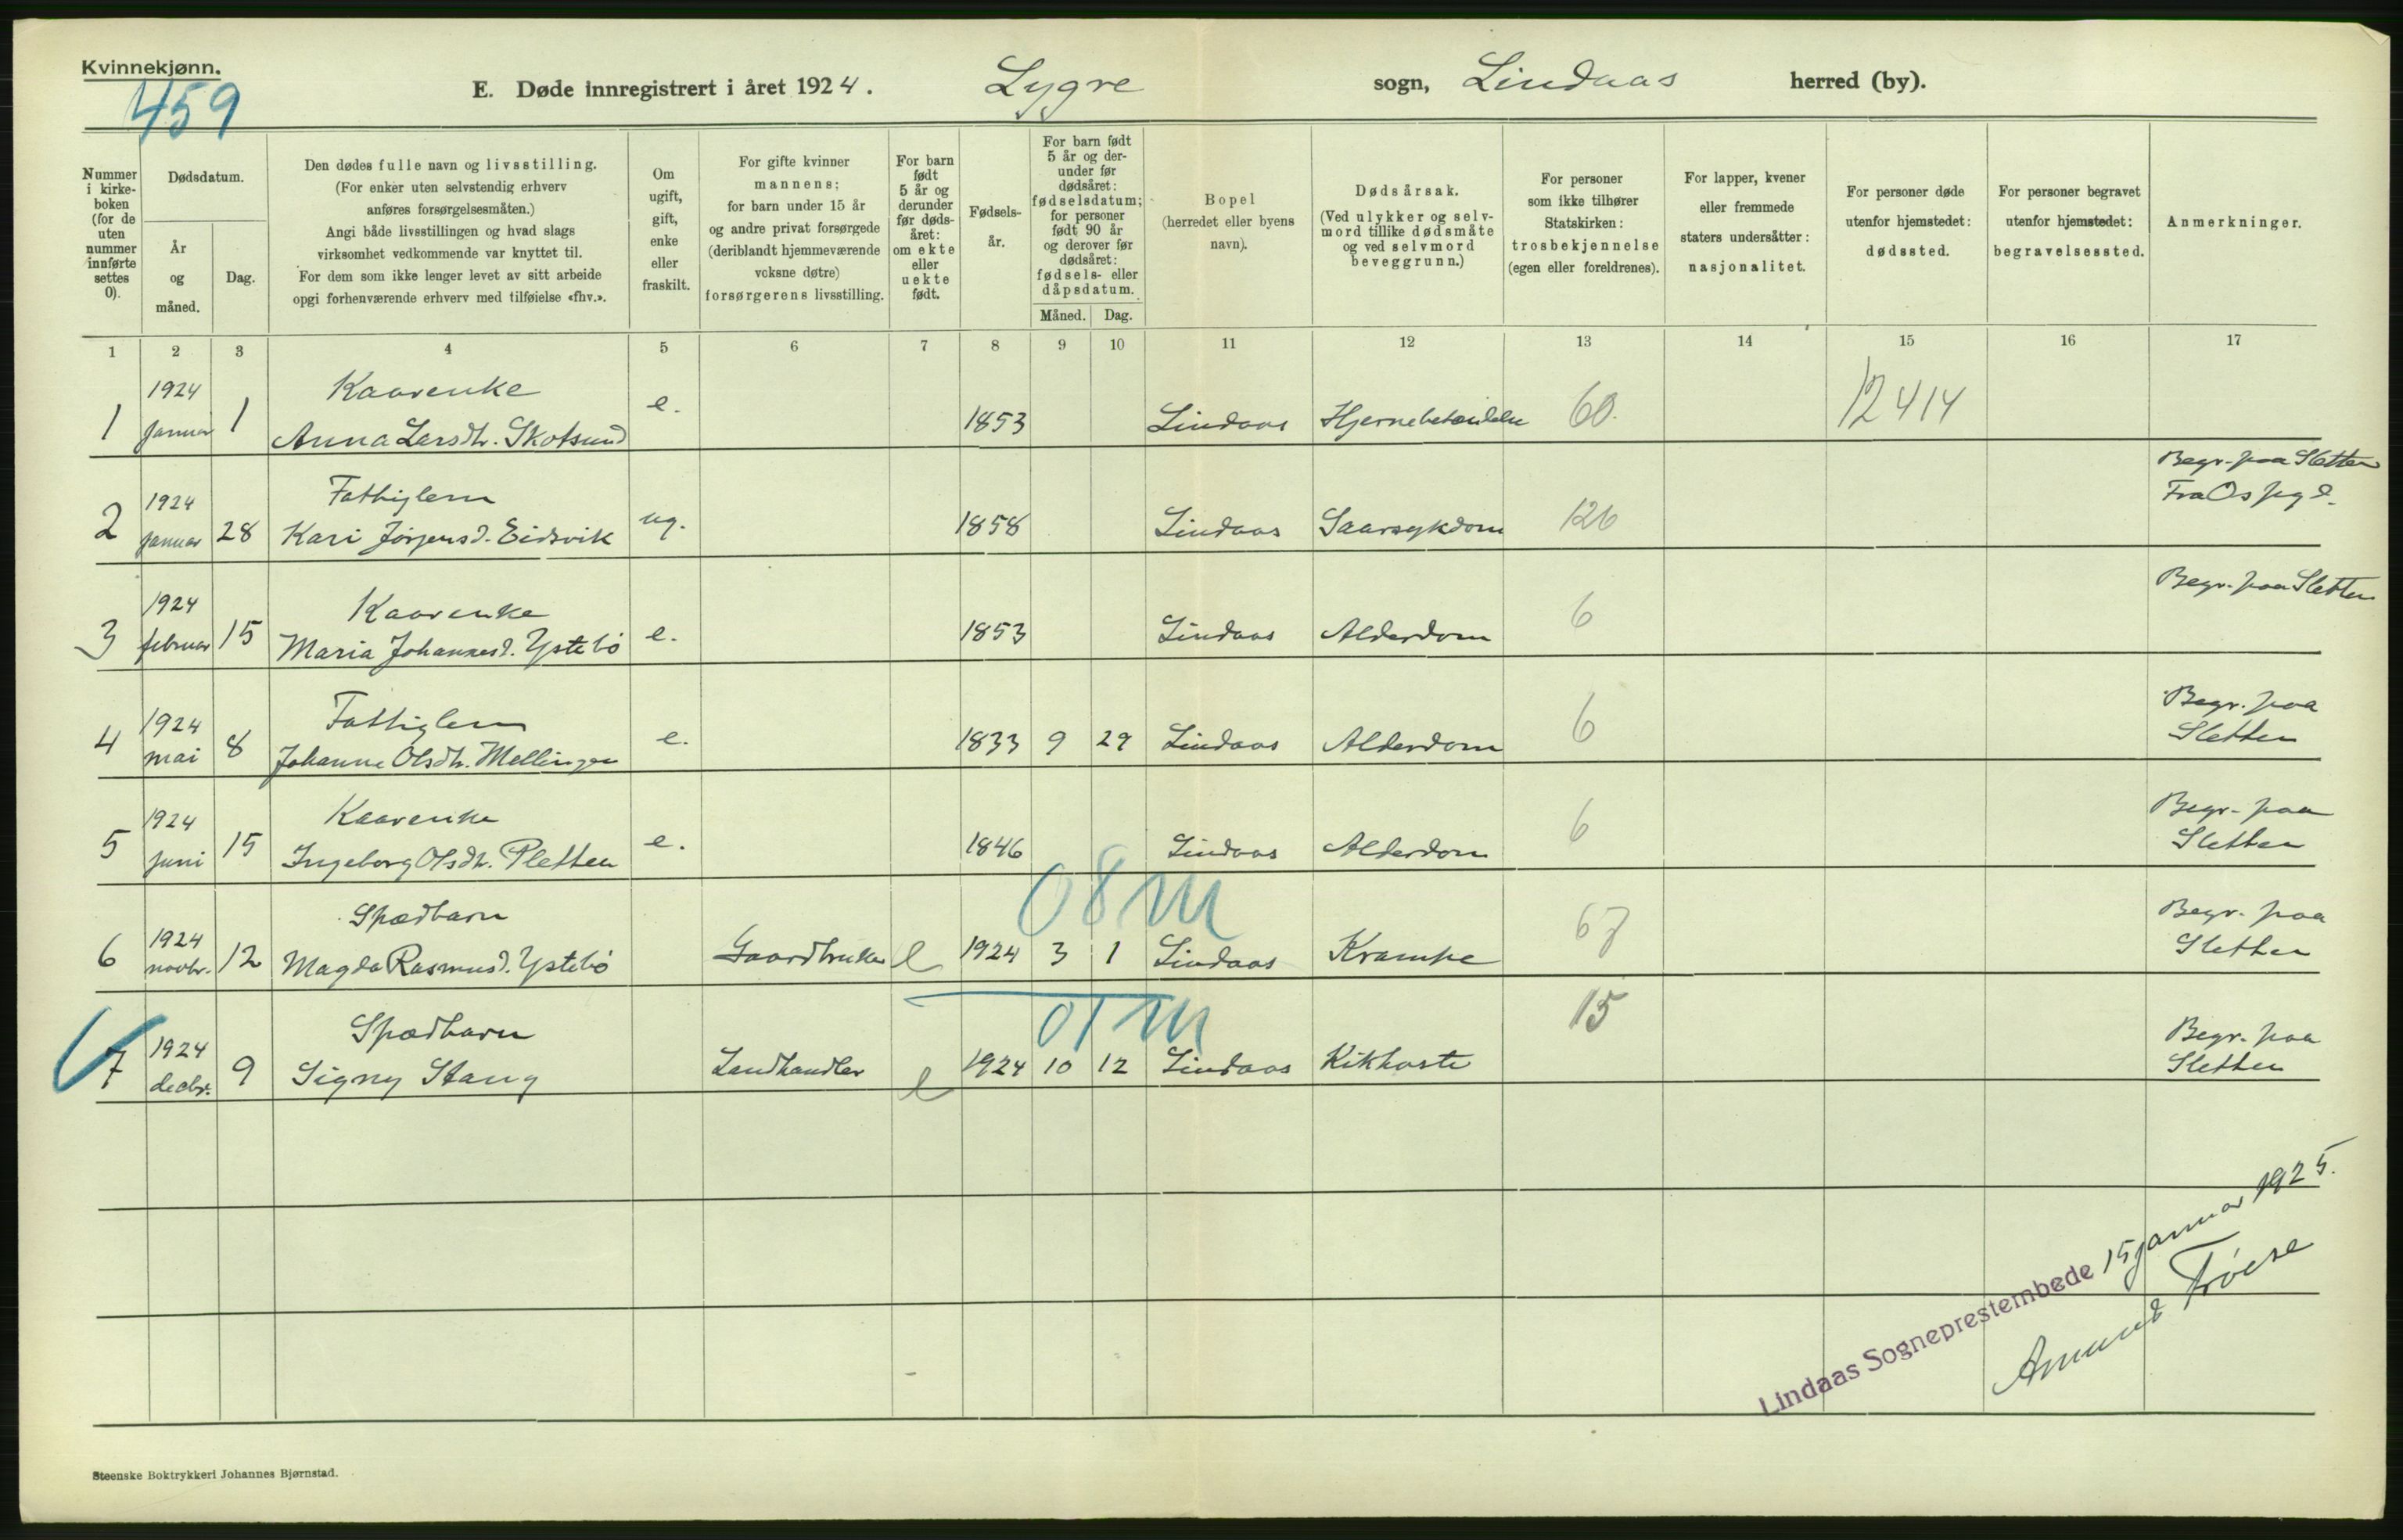 Kvinnekjønn.
459
E. Døde innregistrert i året 1924. Lygre sogn, Lindaas herred (by).
Nummer i kirke-boken (for de uten nummer innførte settes 0).
Dødsdatum.
År og måned.
Dag.
Den dødes fulle navn og livsstilling.
(For enker uten selvstendig erhverv
anføres forsørgelsesmåten.)
Angi både livsstillingen og hvad slags
virksomhet vedkommende var knyttet til.
For dem som ikke lenger levet av sitt arbeide
opgi forhenværende erhverv med tilføielse «fhv.».
Om ugift, gift, enke eller fraskilt.
For gifte kvinner
mannens;
for barn under 15 år
og andre privat forsørgede
(deriblandt hjemmeværende
voksne døtre)
forsørgerens livsstilling.
For barn født 5 år og derunder før døds-året: om ekte eller uekte født.
Fødsels-år.
For barn født 5 år og der-under før dødsåret: fødselsdatum; for personer født 90 år og derover før dødsåret: fødsels- eller dåpsdatum.
Måned. Dag.
Bopel
(herredet eller byens
navn).
Dødsårsak.
(Ved ulykker og selv-
mord tillike dødsmåte
og ved selvmord
beveggrunn.)
For personer
som ikke tilhører
Statskirken:
trosbekjennelse
(egen eller foreldrenes).
For lapper, kvener
eller fremmede
staters undersåtter:
nasjonalitet.
For personer døde
utenfor hjemstedet:
dødssted.
For personer begravet
utenfor hjemstedet:
begravelsessted.
Anmerkninger.
1 2 3 4 5 6 7 8 9 10 11 12 13 14 15 16 17
1924 Kaarenke
1 januar 1 Anna Larsdtr. Skotsund e. 1853 Lindaas Hjernebetændelse 60. 12414
1924 Fattiglem Begr. paa Sletten
2 januar 28 Kari Jørgensd. Eidsvik ug. 1858 Lindaas Saarsykdom 126 Fra Os
1924 Kaarenke Begr. paa Sletten
3 februar 15 Maria Johannesd. Ystebø e. 1853 Lindaas Alderdom 6
1924 Fattiglem Begr. paa
4 mai 8 Johanne Olsdtr. Mellingen e. 1833 9 29 Lindaas Alderdom 6 Sletten
1924 Kaarenke Begr. paa
5 juni 15 Ingeborg Olsdtr. Pletten e. 1846 Lindaas Alderdom 6 Sletten
08 m
1924 Spædbarn Begr. paa
6 novbr. 12 Magda Rasmusd. Ystebø Gaardbruker e 1924 3 1 Lindaas Krampe Sletten
01 m
1924 Spædbarn 15 Begr. paa
7 decbr. 9 Signy Stang Landhandler e 1924 10 12 Lindaas Kikhoste Sletten
Lindaas Sogneprestembede 15 januar 1925.
Steenske Boktrykkeri Johannes Bjørnstad.